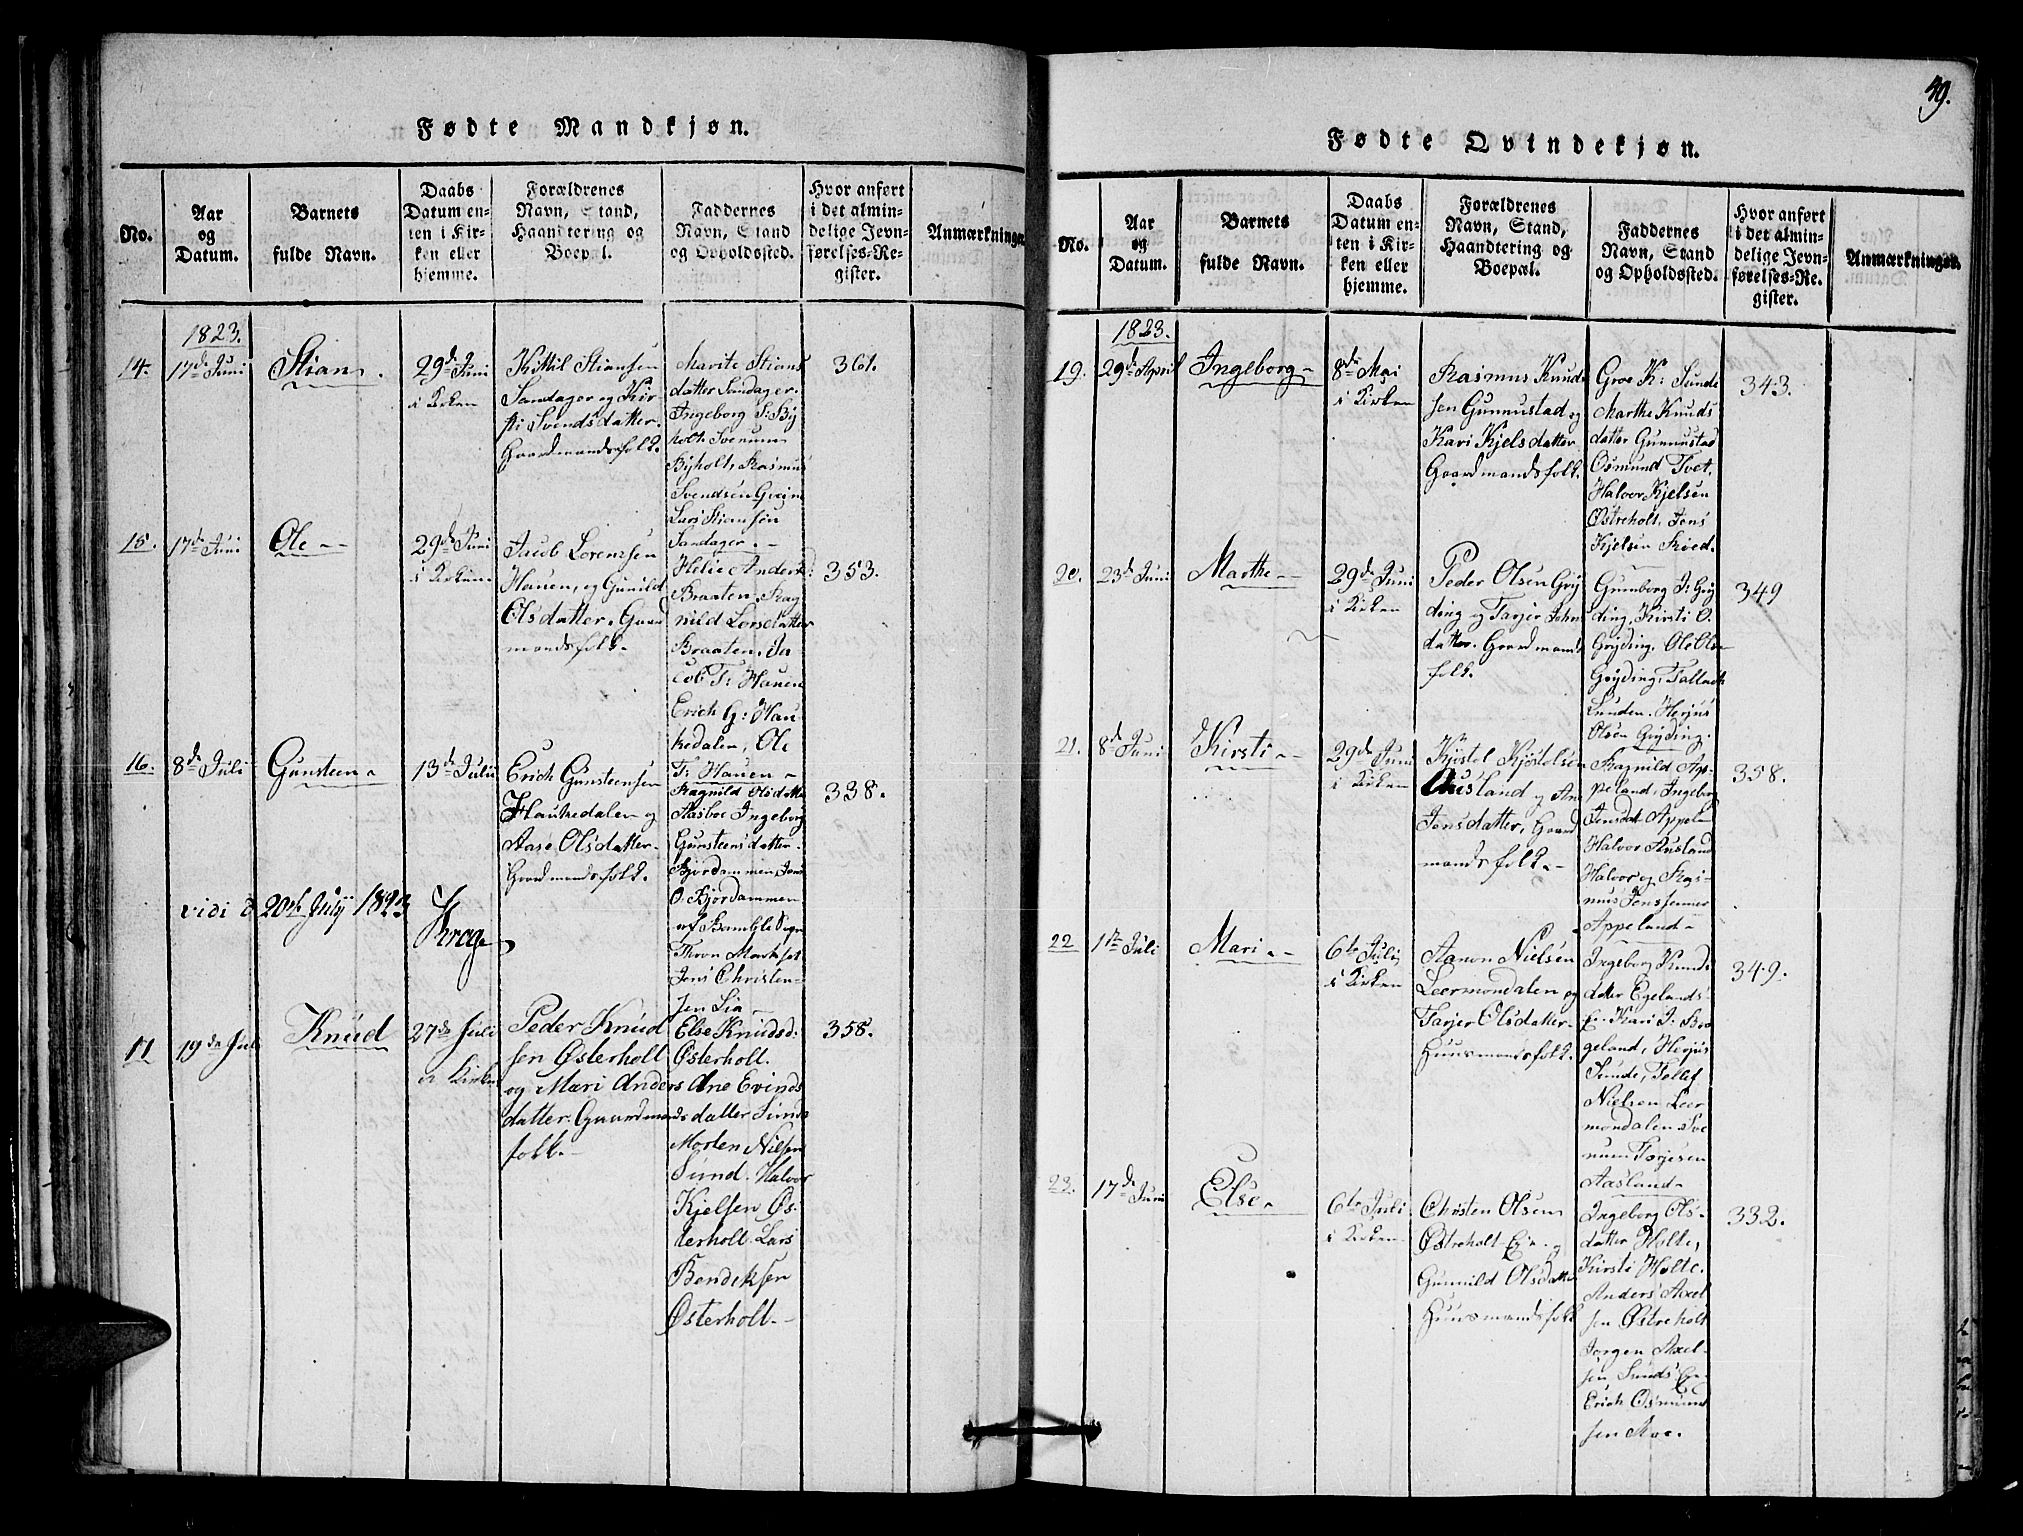 Fødte Mandkjøn.
No.
Aar
og
Datum.
Barnets
fulde Navn.
Daabs
Datum en-
ten i Kir-
ken eller
hjemme.
Forældrenes
Navn, Stand,
Haandtering og
Boepæl.
Faddernes
Navn, Stand
og Opholdssted.
Hvor anført
i det almin-
delige Jevn-
førelses-Re-
gister.
Anmærkninger.
1823.
14.
17de Juni
Stian.
29de Juni
i Kirken
Kittil Stiansen
Sandager og Kir-
sti Svendsdatter.
Gaardmandsfolk.
Marite Stians
datter Sandager.
Ingeborg S: Bÿ
holt. Svenum
Bÿholt, Rasmus
Svendsen
Lars Stiansen
Sandager.
361.
15.
17de Juni
Ole
29de Juni
i Kirken.
Jacob Lorenssen
Hauen, og Gunild
Olsdatter. Gaard
mandsfolk.
Helie Andersd:
Braaten. Rag
nild Larsdatter
Braaten. Ja-
cob T: Hauen
Erich G: Hau-
kedalen, Ole
T: Hauen
353.
16.
8de Juli
Gunsteen
13de Julii
Erich Gunsteensen
Haukedalen og
Aase Olsdatter.
Gaardmandsfolk.
Ragnild Olsdatter
Aasboe Ingeborg
Gunsteensdatter.
Bjordammen, Jens
O. Bjordammen
af Bamble Sogn
Thron
Jens Christen-
sen Lia
338.
vidi d 20de Julÿ 1823
Krog
17
19de Juli
Knud
27de Juli
i Kirken
Peder Knud
sen Østerholt
og Mari Anders
datter. Gaardmands
folk.
Else Knudsd:
Østerholt.
Ane Evinds
datter Sunde
Morten Nilsen
Sund. Halvor
Kjelsen Øs-
terholt. Lars
Bendiksen
Østerholt.
358.
39.
Fødte Qvindekjøn.
No.
Aar
og
Datum.
Barnets
fulde Navn.
Daabs
Datum en-
ten i Kir-
ken eller
hjemme.
Forældrenes
Navn, Stand,
Haandtering og
Boepæl.
Faddernes
Navn, Stand
og Opholdssted.
Hvor anført
i det almin-
delige Jevn-
førelses-Re-
gister.
Anmærkninger.
1823.
19.
29de April
Ingeborg
8de Mai
i Kirken
Rasmus Knud
sen Gunnustad og
Kari Kjelsdatter
Gaardmandsfolk.
Groe K: Sunde
Marthe Knuds
datter Gunnustad
Osmund Tvet.
Halvor Kjelsen
Østreholt. Jens
Kjelsen Roed.
343.
20.
23de Juni
Marthe
29de Juni
i Kirken
Peder Olsen Grÿ
ding og Tarjer John
datter. Gaardmands
folk.
Gunborg J: Grÿ
ding. Kirsti O.
Grÿding. Ole Olsen
Grÿding. Tallack
Lunden. Herjus
Olsen Grÿding.
349
21.
8de Juni
Kirsti
29de Juni
i Kirken
Kjøstel Kjøstelsen
Ausland og Ane
Jensdatter, Gaard
mandsfolk.
Ragnild Ap-
peland, Ingeborg
Jensdat Appeland
Halvor Ausland
Halvor og Ras-
mus Jenssenner
Appeland
358.
22
1te Juli
Mari
6te Juli
i Kirken
Aanon Nielsen
Leermondalen og
Tarjer Olsdatter
Huusmandsfolk.
Ingeborg Knuds
datter Egelands
E. Kari J: Bo
geland, Herjus
Sunde, Tollef
Nielsen Leer
mondalen Sve
num Torjesen
Aasland
349.
23.
17de Juni
Else
6te Juli
i Kirken
Christen Olsen
Østreholt Eje og
Gunnild Olsdatter
Huusmandsfolk
Ingeborg Ols-
datter Holte,
Kirsti Holte.
Anders Axel
sen Østreholt
Jorgen Axel-
sen, Sunds Eje
Erich Osmund
sen Roe.
332.